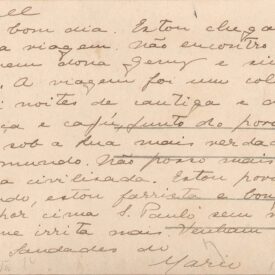 ell
bom dia. Estou chega
a viagem. não encontro
nem dona
. A viagem foi um col
i noites de cantiga e d
ça e café, junto do povo
sob a lua mais verdad
mundo. Não posso mais
a civilisada. Estou povo
ndo, estou farrista e bom
por cima S. Paulo sem
me irrita mais. Venham
Saudades do
Mario